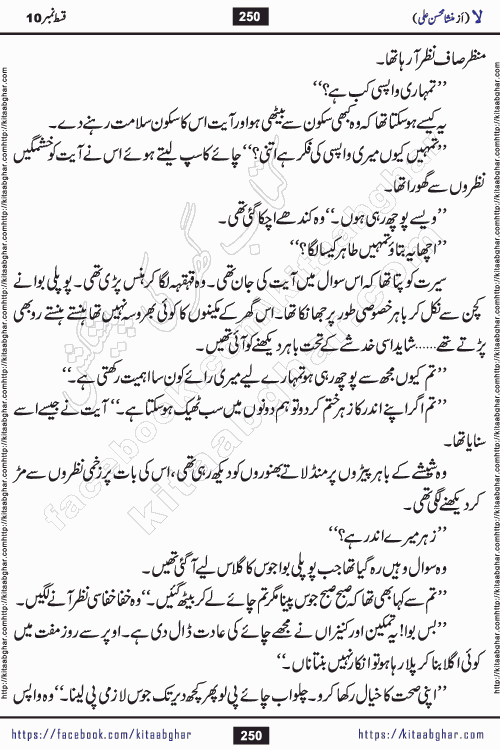 لا (از منشا محسن علی) 250 قسط نمبر 10
منظر صاف نظر آ رہا تھا۔
’’تمہاری واپسی کب ہے؟‘‘
یہ کیسے ہو سکتا تھا کہ وہ کبھی سکون سے بیٹھی ہو اور آیت اس کا سکون سلامت رہنے دے۔
’’تمہیں کیوں میری واپسی کی فکر ہے اتنی؟‘‘ چائے کا سپ لیتے ہوئے اس نے آیت کو خشمگیں
نظروں سے گھورا تھا۔
’’ویسے پوچھ رہی ہوں۔‘‘ وہ کندھے اچکا گئی تھی۔
’’اچھا یہ بتاؤ تمہیں طاہر کیسا لگا؟‘‘
سیرت کو پتا تھا کہ اس سوال میں آیت کی جان تھی۔ وہ قہقہہ لگا کر ہنس پڑی تھی۔ پوپلی بوا نے
کچن سے نکل کر باہر خصوصی طور پر جھانکا تھا۔ اس گھر کے مکینوں کا کوئی بھروسہ نہیں تھا ہنستے ہنستے رو بھی
پڑتے تھے......شاید اسی خدشے کے تحت باہر دیکھنے کو آئی تھیں۔
’’تم کیوں مجھ سے پوچھ رہی ہو تمہارے لیے میری رائے کون سا اہمیت رکھتی ہے۔‘‘
’’تم اگر اپنے اندر کا زہر ختم کر دو تو ہم دونوں میں سب ٹھیک ہو سکتا ہے۔‘‘ آیت نے جیسے اسے
سنایا تھا۔
وہ شیشے کے باہر پیڑوں پر منڈلاتے بھنوروں کو دیکھ رہی تھی، اس کی بات پر زخمی نظروں سے مڑ
کر دیکھنے لگی تھی۔
’’زہر میرے اندر ہے؟‘‘
وہ سوال وہیں رہ گیا تھا جب پوپلی بوا جوس کا گلاس لیے آ گئی تھیں۔
’’تم سے کہا بھی تھا کہ صبح صبح جوس پینا مگر تم چائے لے کر بیٹھ گئیں۔‘‘ وہ خفا خفا سی نظر آنے لگیں۔
’’بس بوا! یہ تمکین اور کنیزاں نے مجھے چائے کی عادت ڈال دی ہے۔ اوپر سے روز مفت میں
کوئی اگلا بنا کر پلا رہا ہو تو انکار نہیں بنتا ناں۔‘‘
’’اپنی صحت کا خیال رکھا کرو۔ چلو اب چائے پی لو پھر کچھ دیر تک جوس لازمی پی لینا۔‘‘ وہ واپس
https://facebook.com/kitaabghar 250 https://kitaabghar.com